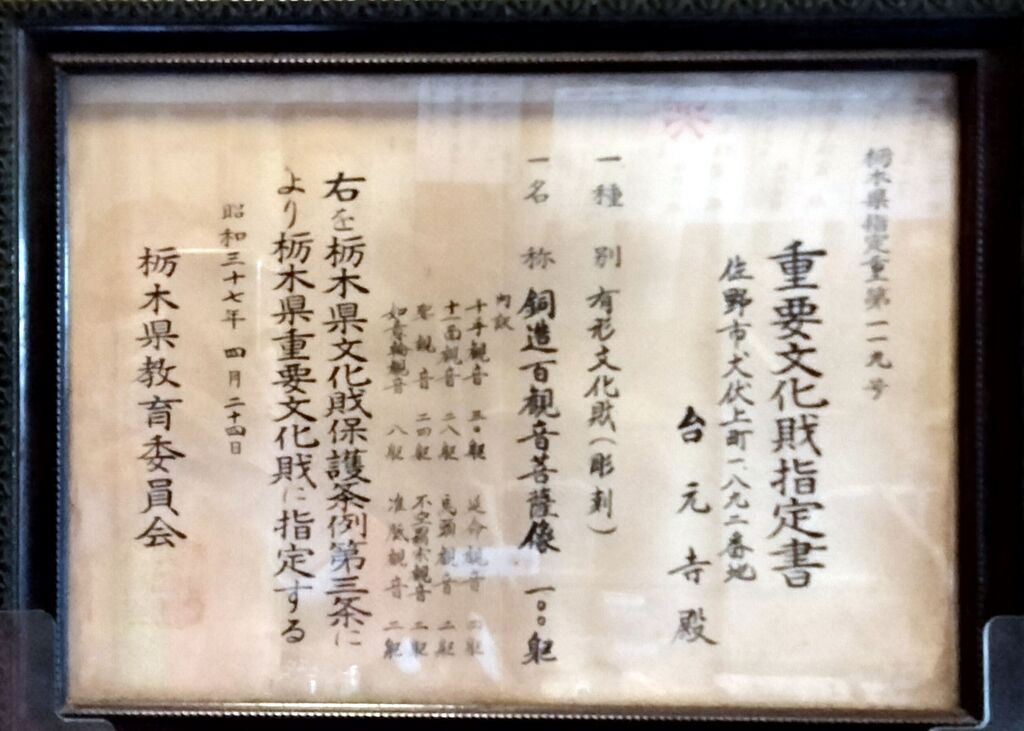 栃木県指定重第一一九号
重要文化財指定書
佐野市犬伏上町一、八九二番地
台元寺殿
一種別 有形文化財(彫刻)
一名称 銅造百観音菩薩像 一〇〇躯
内訳
千手観音 三〇躯 延命観音 二躯
十一面観音 二八躯 馬頭観音 二躯
聖観音 二四躯 不空羂索観音 二躯
如意輪観音 八躯 准胝観音 二躯
右を栃木県文化財保護条例第三条に
より栃木県重要文化財に指定する
昭和三十七年四月二十四日
栃木県教育委員会